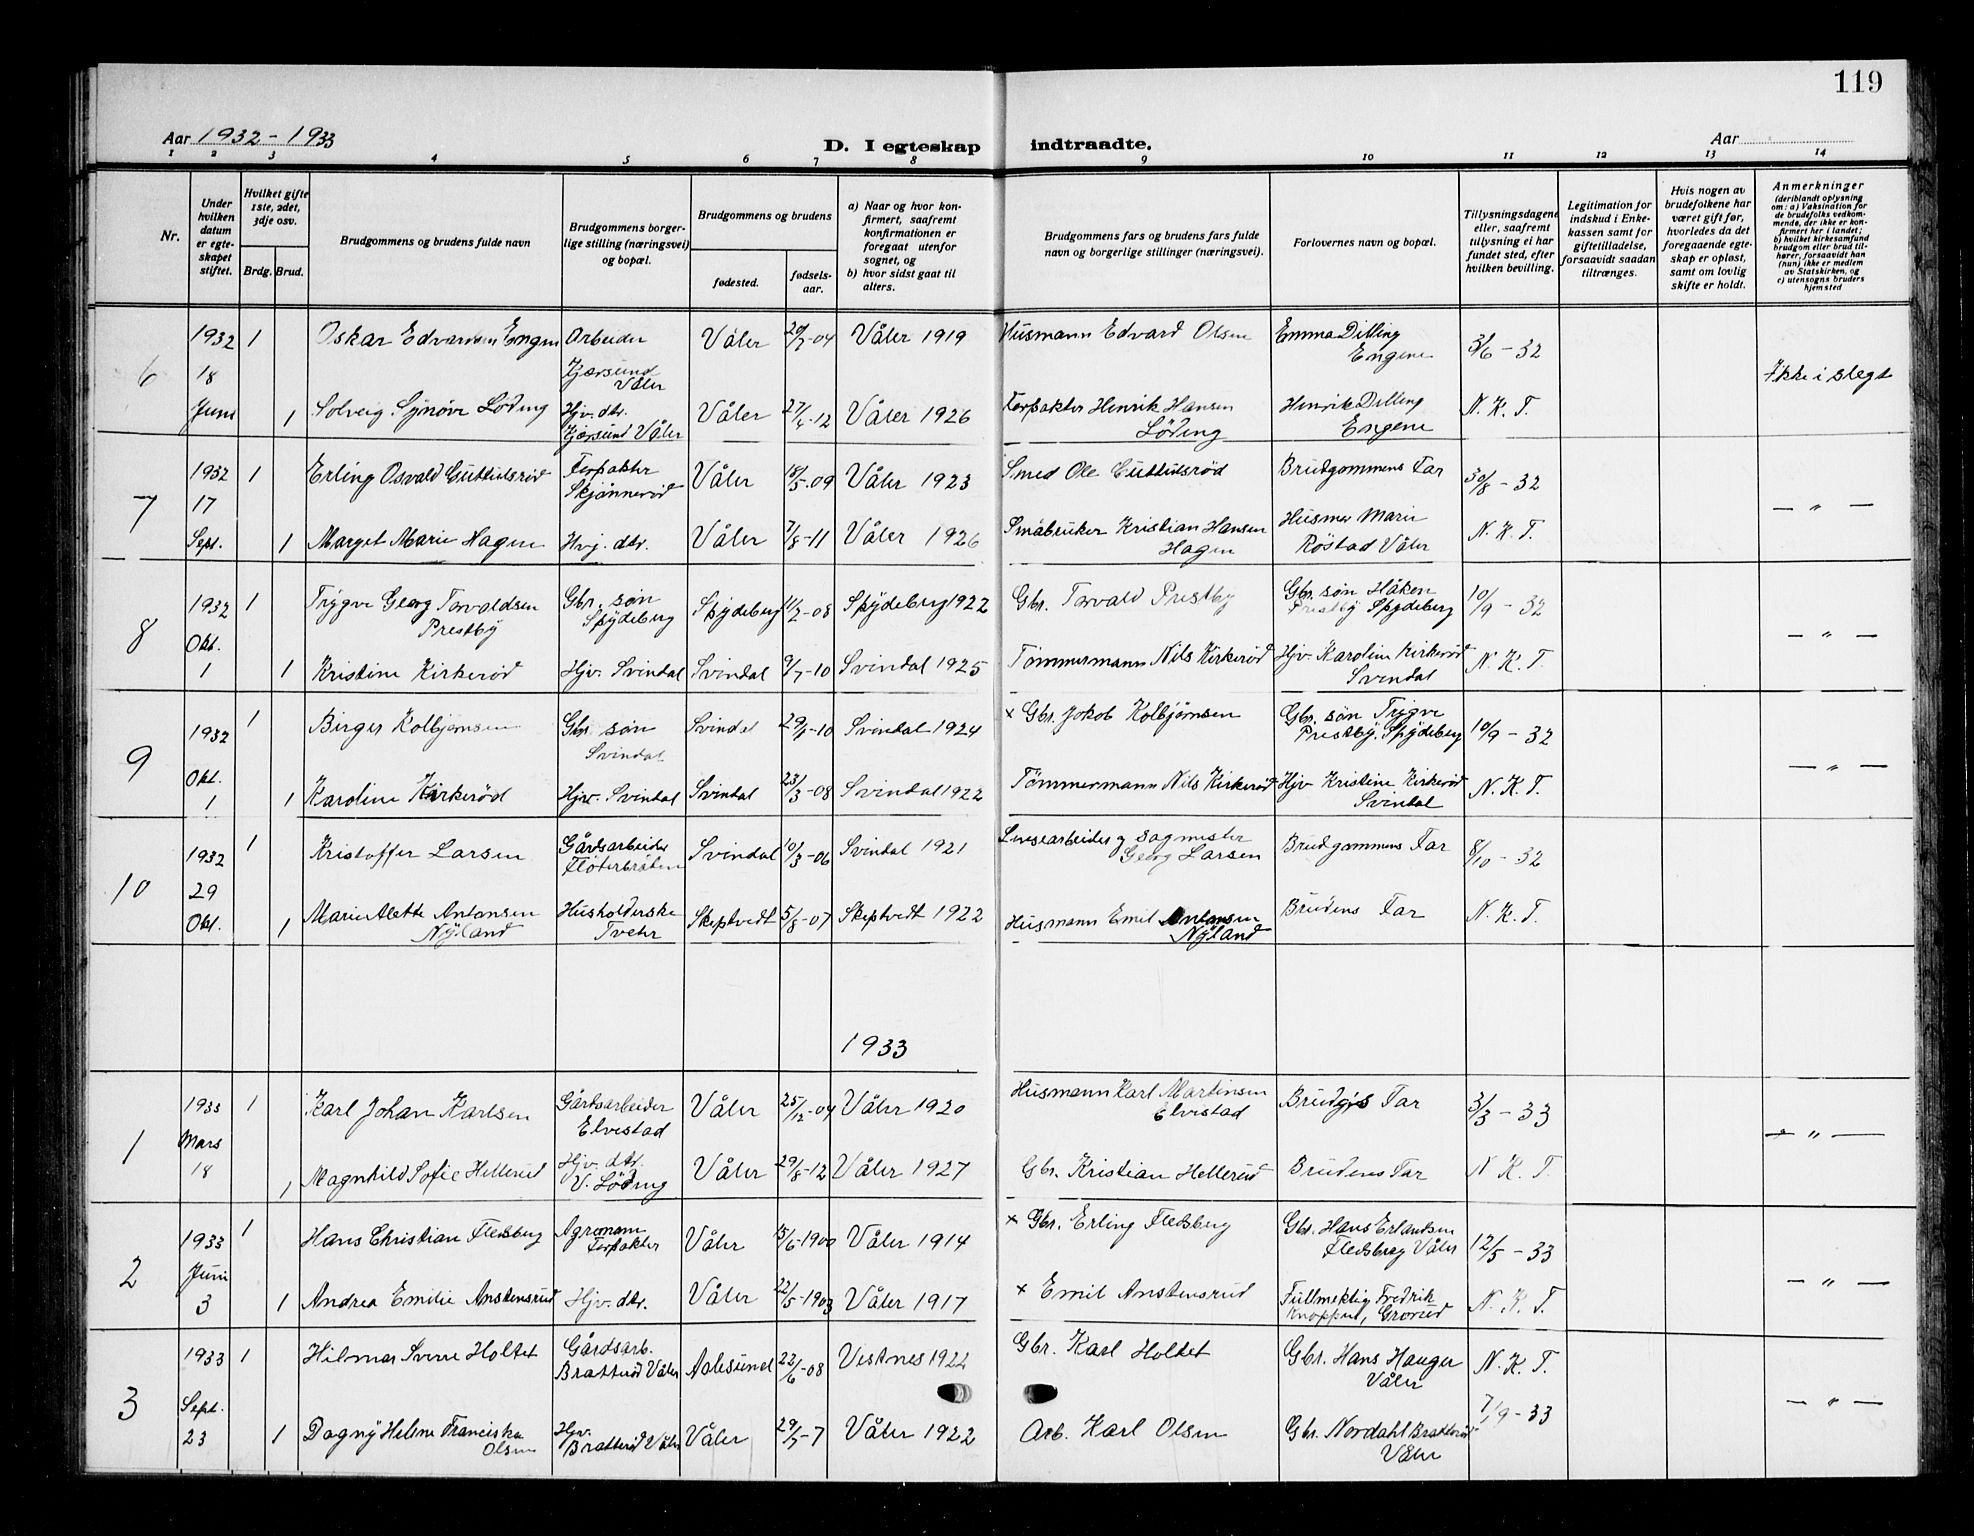 119
Aar 1932-1933
D. I egteskap indtraadte.
Aar
1 2 3 4 5 6 7 8 9 10 11 12 13 14
Nr.
Under hvilken datum er egteskapet stiftet.
Hvilket gifte 1ste, 2det, 3dje osv.
Brdg. Brud.
Brudgommens og brudens fulde navn
Brudgommens borgerlige stilling (næringsvei) og bopæl.
Brudgommens og brudens
fødested. fødselsaar.
a) Naar og hvor konfirmert, saafremt konfirmationen er foregaat utenfor sognet, og
b) hvor sidst gaat til alters.
Brudgommens fars og brudens fars fulde navn og borgerlige stillinger (næringsvei).
Forlovernes navn og bopæl.
Tillysningsdagene eller, saafremt tillysning ei har fundet sted, efter hvilken bevilling.
Legitimation for indskud i Enkekassen samt for giftetilladelse, forsaavidt saadan tiltrænges.
Hvis nogen av brudefolkene har været gift før, hvorledes da det foregaaende egteskap er opløst, samt om lovlig skifte er holdt.
Anmerkninger (deriblandt oplysning om: a) Vaksination for de brudefolks vedkommende, der ikke er konfirmert her i landet; b) hvilket kirkesamfund brudgom eller brud tilhører, forsaavidt han (hun) ikke er medlem av Statskirken, og c) utensogns bruders hjemsted
6 1932 18 Juni
1 Oskar Edvardsen Engen Arbeider Kjærsund Våler Våler 20/7-04 Våler 1919 Husmann Edvard Olsen Emma Dilling Engene 3/6-32
Ikke i slegt
1 Solveig Synøve Løding Hjv. dtr. Kjærsund Våler Våler 27/4-12 Våler 1926 Forpakter Henrik Hansen Løding Henrik Dilling Engene N. K. T.
7 1932 17 Sept.
1 Erling Osvald Guttulsrød Forpakter Skjønnerød Våler 18/5-09 Våler 1923 Smed Ole Guttulsrød Brudgommens Far 30/8-32
— " —
1 Marget Marie Hagen Hvj. dtr. Våler 7/8-11 Våler 1926 Småbruker Kristian Hansen Hagen Husmor Marie Røstad Våler N. K. T.
8 1932 Okt. 1
1 Trygve Georg Torvaldsen Prestby Gbr. søn Spydeberg Spydeberg 11/2-08 Spydeberg 1922 Gbr. Torvald Prestby Gbr. søn Håken Prestby Spydeberg 10/9-32
— " —
1 Kristine Kirkerød Hjv. Svindal Svindal 9/7-10 Svindal 1925 Tømmermann Nils Kirkerød Hjv. Karoline Kirkerød Svindal N. K. T.
9 1932 Okt. 1
1 Birger Kolbjørnsen Gbr. søn Svindal Svindal 29/1-10 Svindal 1924 x Gbr. Jokob Kolbjørnsen Gbr. søn Trygve Prestby. Spydeberg 10/9-32
— " —
1 Karoline Kirkerød Hjv. Svindal Svindal 23/3-08 Svindal 1922 Tømmermann Nils Kirkerød Hjv Kristine Kirkerød Svindal N. K. T.
10 1932 29 Okt.
1 Kristoffer Larsen Gårdsarbeider Fløterbråten Svindal 10/3-06 Svindal 1921 sagmester Georg Larsen Brudgommens Far 8/10-32
1 Marie Alette Antonsen Nyland Husholderske Tveter Skeptvedt 5/8-07 Skeptvedt 1922 Husmann Emil Antonsen Nyland Brudens Far N. K. T.
1933
1 1933 Mars 18
1 Karl Johan Karlsen Gårdsarbeider Elvestad Våler 25/12-04 Våler 1920 Husmann Karl Martinsen Elvestad Brudg's Far 3/3-33
— " —
1 Magnhild Sofie Hellerud Hjv. dtr. V. Løding Våler 29/8-12 Våler 1927 Gbr. Kristian Hellerud Brudens Far N K. T.
2 1933 Juni 3
1 Hans Christian Fledsberg Agronom Forpakter Våler 15/6-1900 Våler 1914 x Gbr. Erling Fledsberg Gbr. Hans Erlandsen Fledsberg Våler 12/5-33
— " —
1 Andrea Emilie Anstensrud Hjv. dtr. Våler 22/5-1903 Våler 1917 x Emil Anstensrud Fullmektig Fredrik Knoppen, Grorud N. K. T.
3 1933 Sept. 23
1 Hilmar Sverre Holtet Gårdsarb. Bratterød Våler Aalesund 22/6-08 Vestnes 1922 Gbr. Karl Holtet Gbr. Hans Hauger Våler N. K. T.
7/9-33
— " —
1 Dagny Helene Franciska Olsen Hjv. Bratterød Våler Våler 29/7-7 Våler 1922 Arb. Karl Olsen Gbr. Nordahl Bratterød Våler